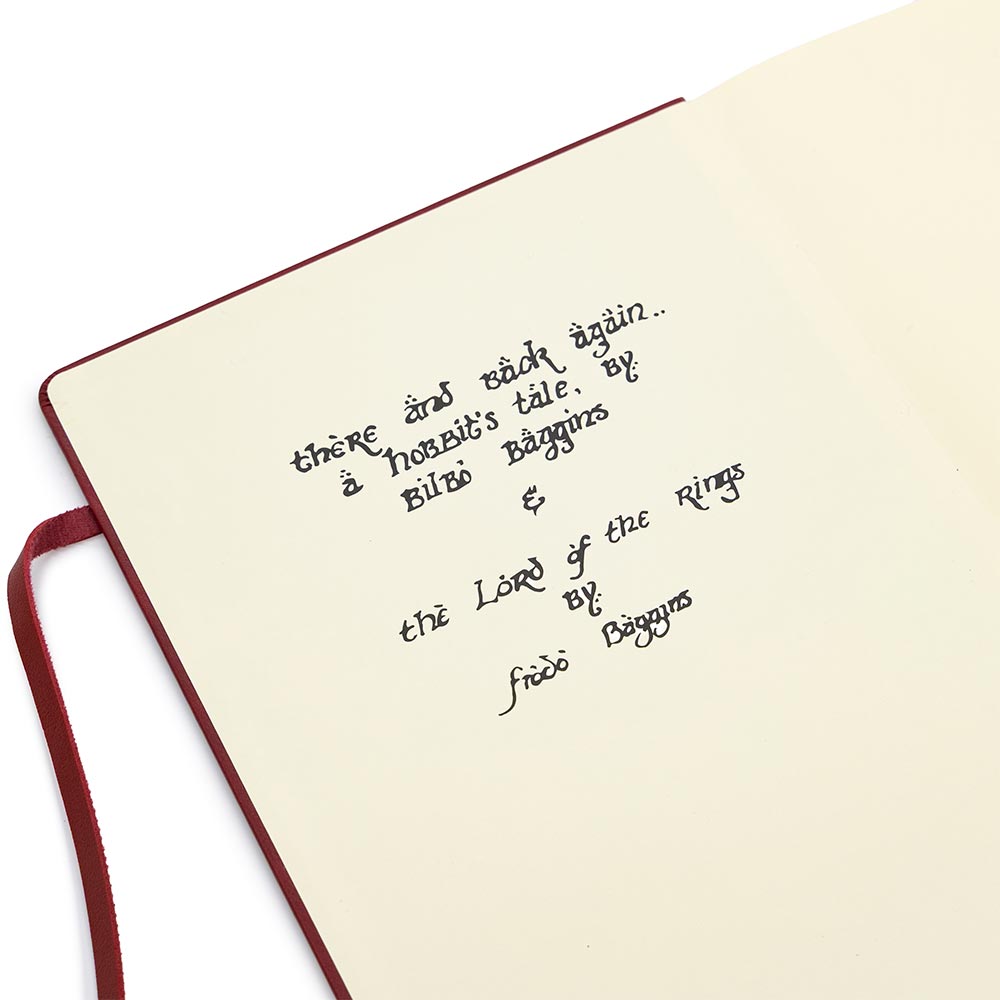 there and back again..
a hobbit's tale. by
Bilbo Baggins
&
the Lord of the Rings
by
frodo Baggins